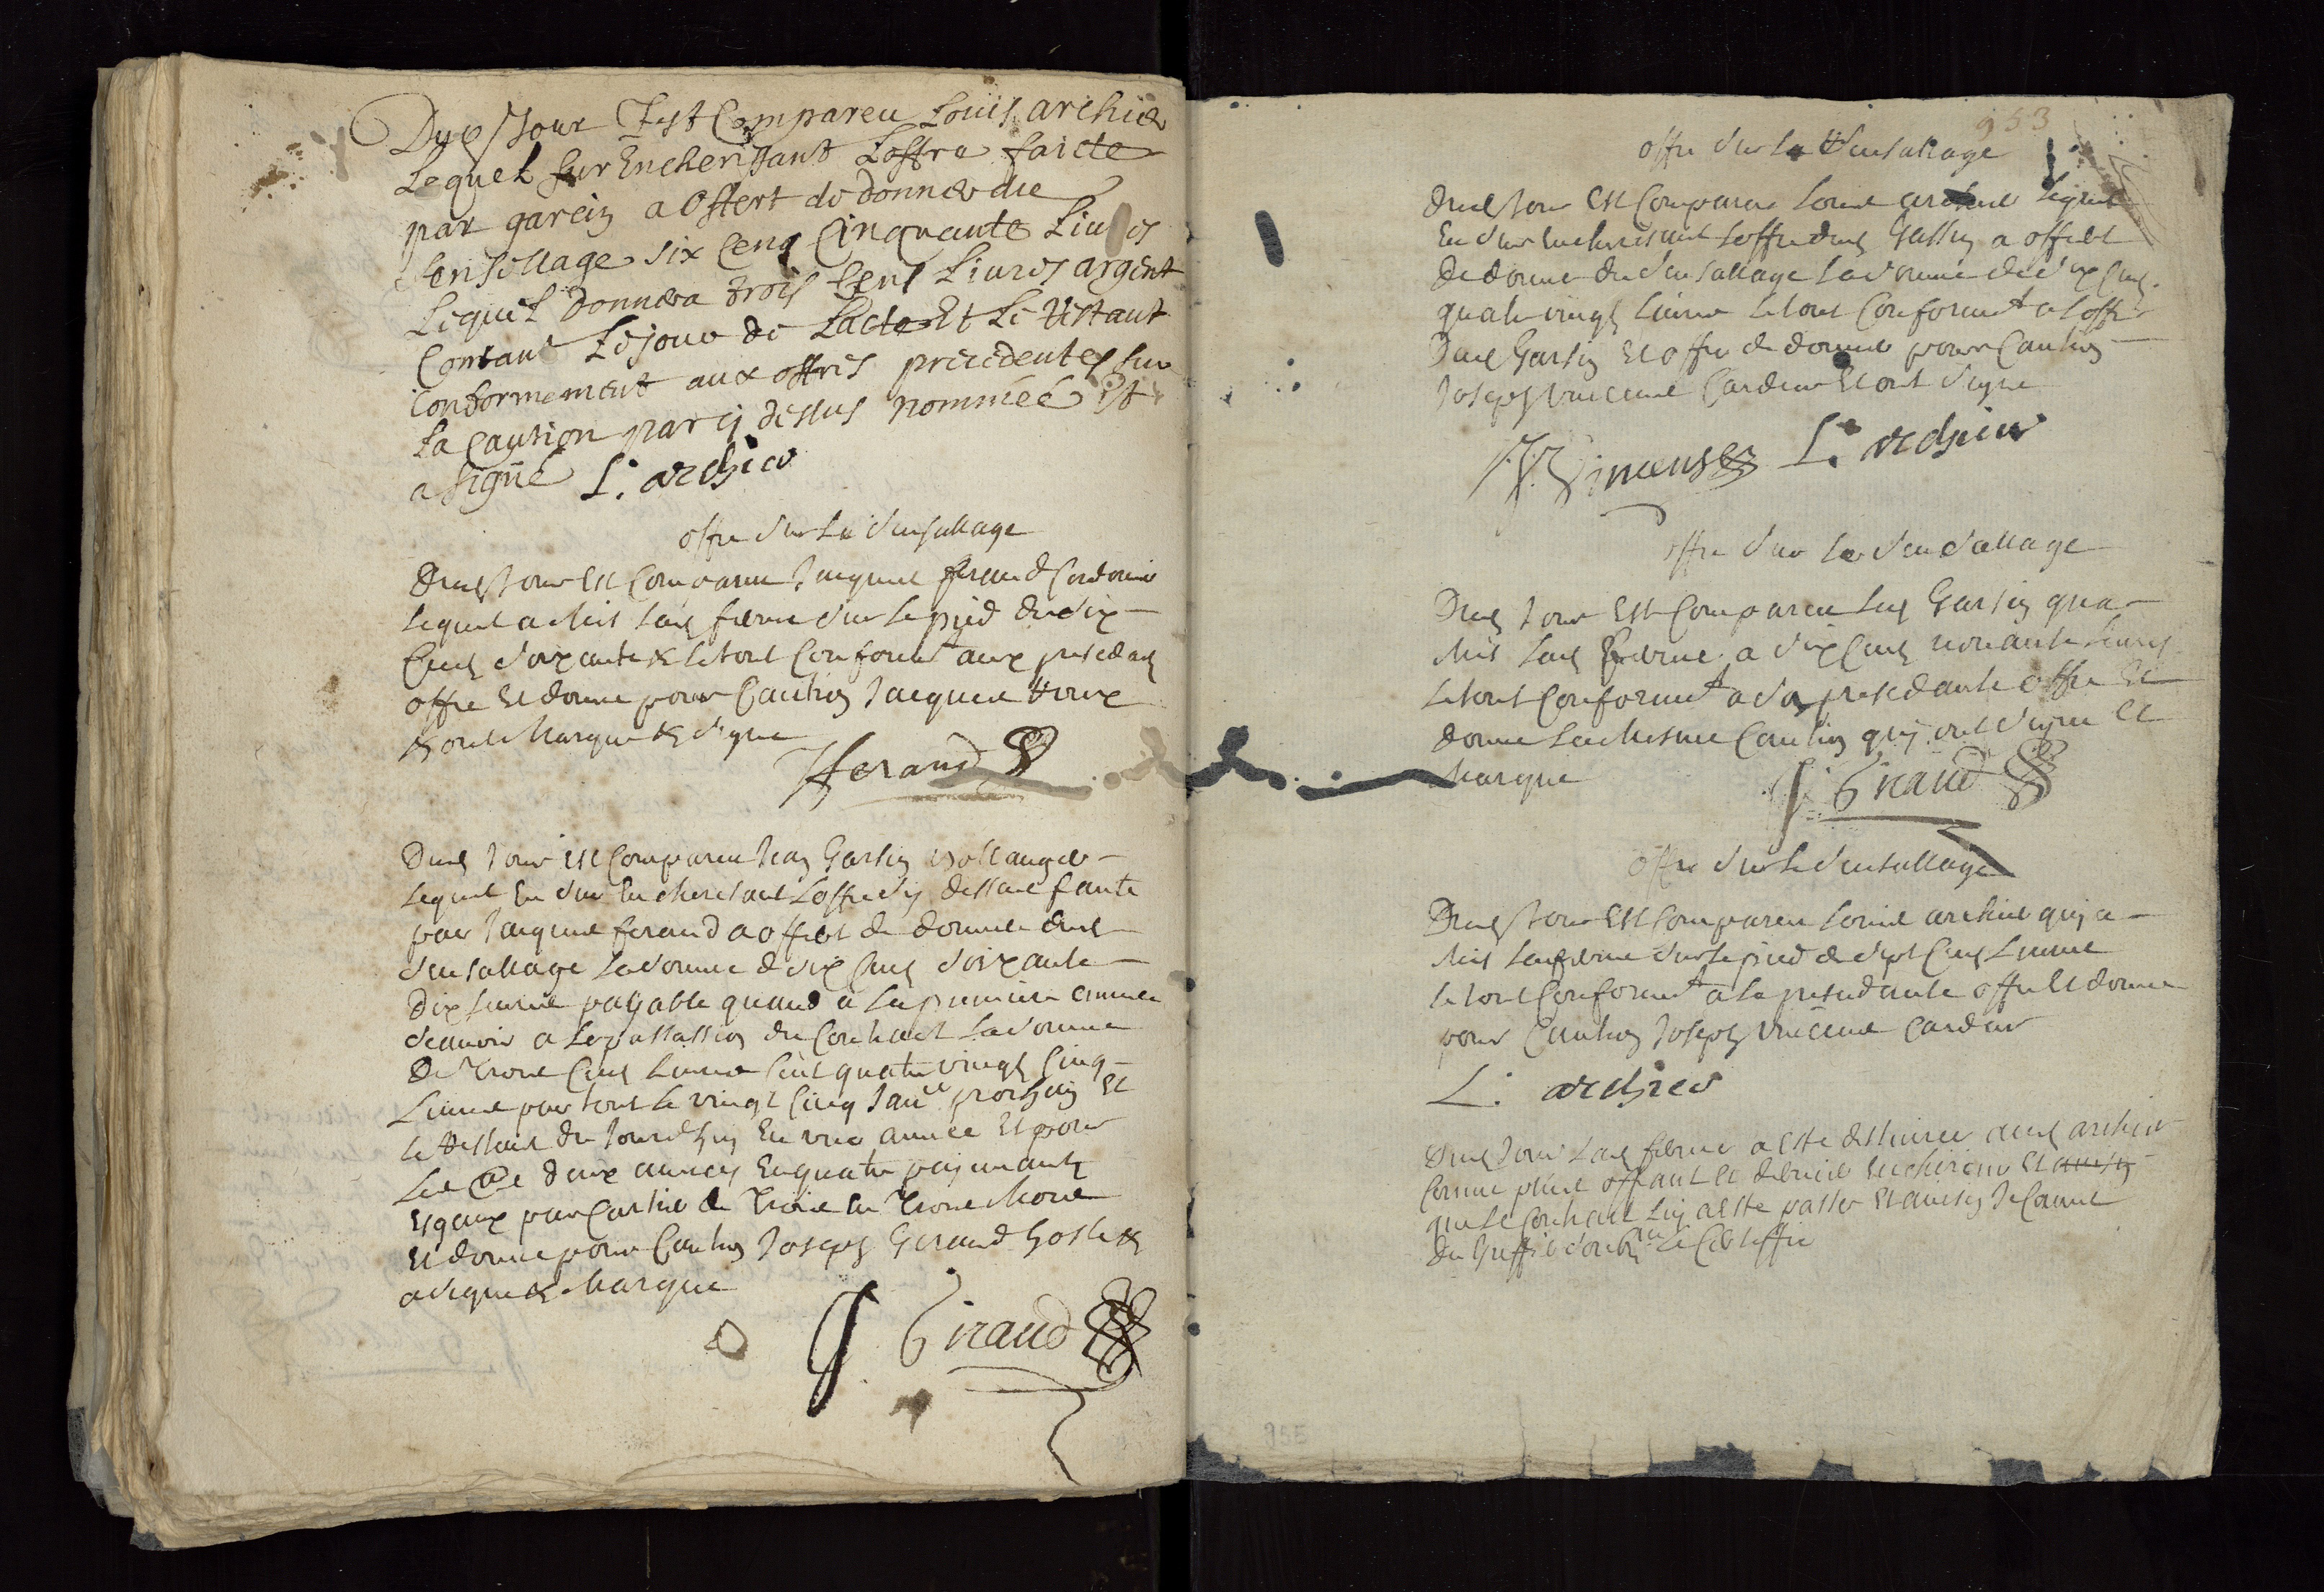 Dud Jour Est Compareu Louis archier
Lequel sur Encherissant Loffre faicte
par garcin a offert de donner du
sensellage six cens Cinquante Livres
Lequel donnera trois Cens Livres argent
Contant Le jour de Lacte Et Le restant
conformement aux offres precedentes sur
La Caution par cy dessus nommée Et
a signé L. archier
offre sur Le sensallage
Dud Jour Est Compareu Jacques feraud
Lequel a Mis Lad ferme sur Le pied de six
Cens soixante # Le tout Conforme.t aux precedan
offre Et donne pour Caution Jacques Roux
& ont Marque & signe
Jferaud
Dud Jour Est Compareu Jean Garcin
Lequel En sur Encherisant Loffre sy dessus faute
par Jacques feraud a offert de donner dud
sensallage La somme de six Cens soixante
Dix Livres payable quand a La premiere annee
scauoir a La passassion du Contract La somme
De Trois Cens Livres Cent quatre vingt Cinq
Liures par tout Le vingt Cinq prochain Et
Le Restant du Jourdhuy En une année Et pour
Les deux annees En quatre payemants
Esgaux par Cartier de Trois En Trois Mois
Et donne pour Caution Joseph Giraud hoste &
a signe & Marque
J. Giraud
953
offre sur Le sensallage
Dud Jour Est Compareu Louis archier Lequel
En sur Encherisant Loffre dud Garcin a offert
De donner du sensallage La somme de six Cens
quatre vingt Liures Le tout Conforme.t a Loffre
Dud Garcin Et offre de donner pour Caution
Joseph Vincens Cardeur Et ont signe
J. Vincens L. archier
offre sur Le sensallage
Dud Jour Est Compareu Led Garcin qui a
Mis Lad ferme a six Cens nonante Liures
Le tout Conforme.t a sa precedante offre Et
donne La Mesme Caution quy ont signe Et
Marque
J. Giraud
offre sur Le sensallage
Dud Jour Est Compareu Louis archier quy a
Mis Lad ferme sur Le pied de sept Cens Liures
Le tout Conforme.t a La precedante offre Et donne
pour Caution Joseph Vincens Cardeur
L. archier
Dud Jour Lad ferme a Este deliuree aud archier
Comme plus offrant Et dernier Encherisseur Et
que Le Contract Luy a Este passe Et
Du Greffier